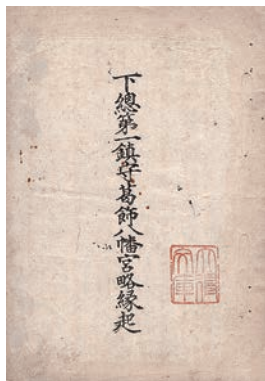 下總第一鎮守葛飾八幡宮略縁起